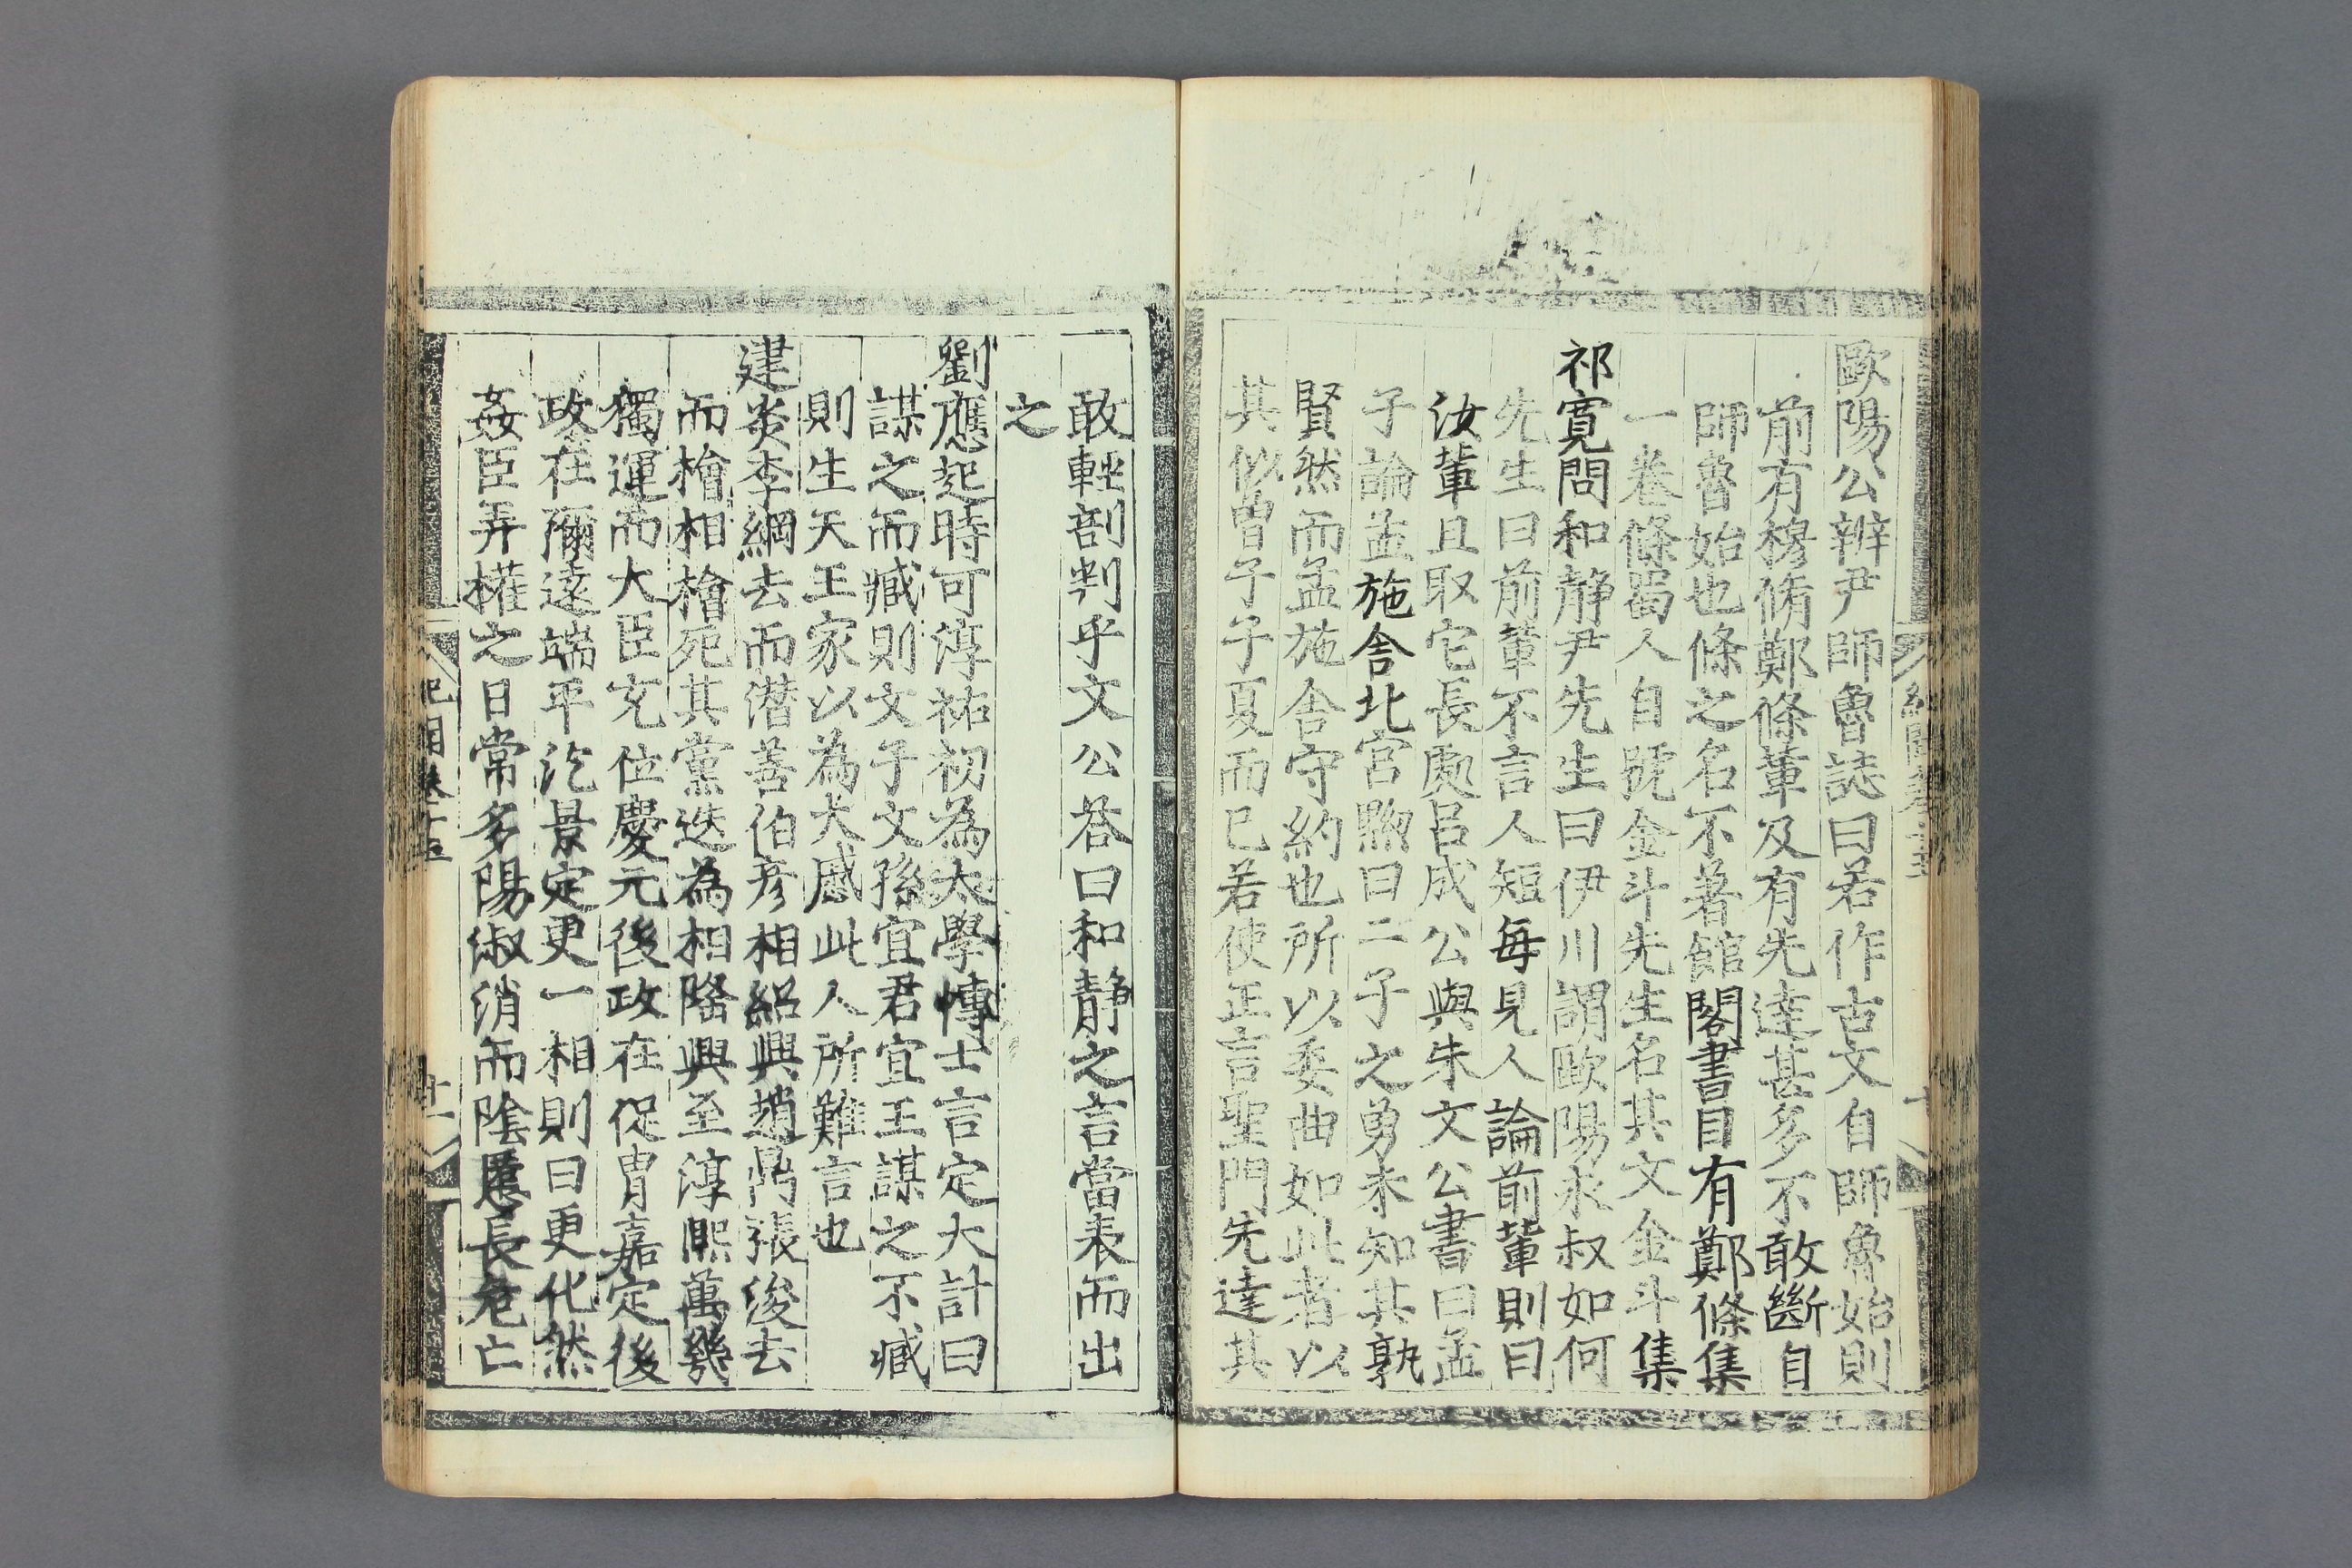 歐陽公辨尹師魯誌曰若作古文自師魯始則
前有穆脩鄭條輩及有先達甚多不敢斷自
師魯始也條之名不著館閣書目有鄭條集
一卷條蜀人自號金斗先生名其文金斗集
祁寬問和靜尹先生曰伊川謂歐陽永叔如何
先生曰前輩不言人短每見人論前輩則曰
汝輩且取它長處呂成公與朱文公書曰孟
子論孟施舍北宮黝曰二子之勇未知其孰
賢然而孟施舍守約也所以委曲如此者以
其似曾子子夏而已若使正言聖門先達其
敢輕剖判乎文公荅曰和靜之言當表而出
之
劉應起時可淳祐初為太學慱士言定大計曰
謀之而臧則文子文孫宜君宜王謀之不臧
則生天王家以為大慼此人所難言也
建炎李綱去而潛善伯彥相紹興趙鼎張浚去
而檜相檜死其黨迭為相隆興至淳熙萬幾
獨運而大臣充位慶元後政在侂胄嘉定後
政在彌遠端平訖景定更一相則曰更化然
姦臣弄權之日常多陽淑消而陰慝長危亡
紀聞卷十五
十一